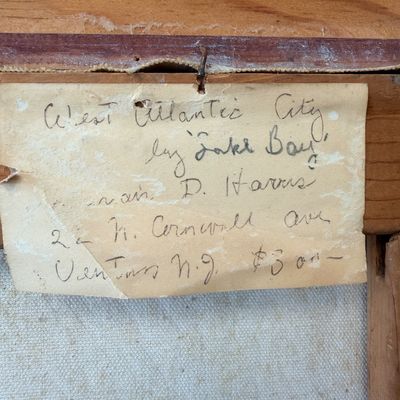 West Atlantic City
by 'Lake Bay'
D. Harris
N. Cornwall ave
Ventnor N.J. $5 00